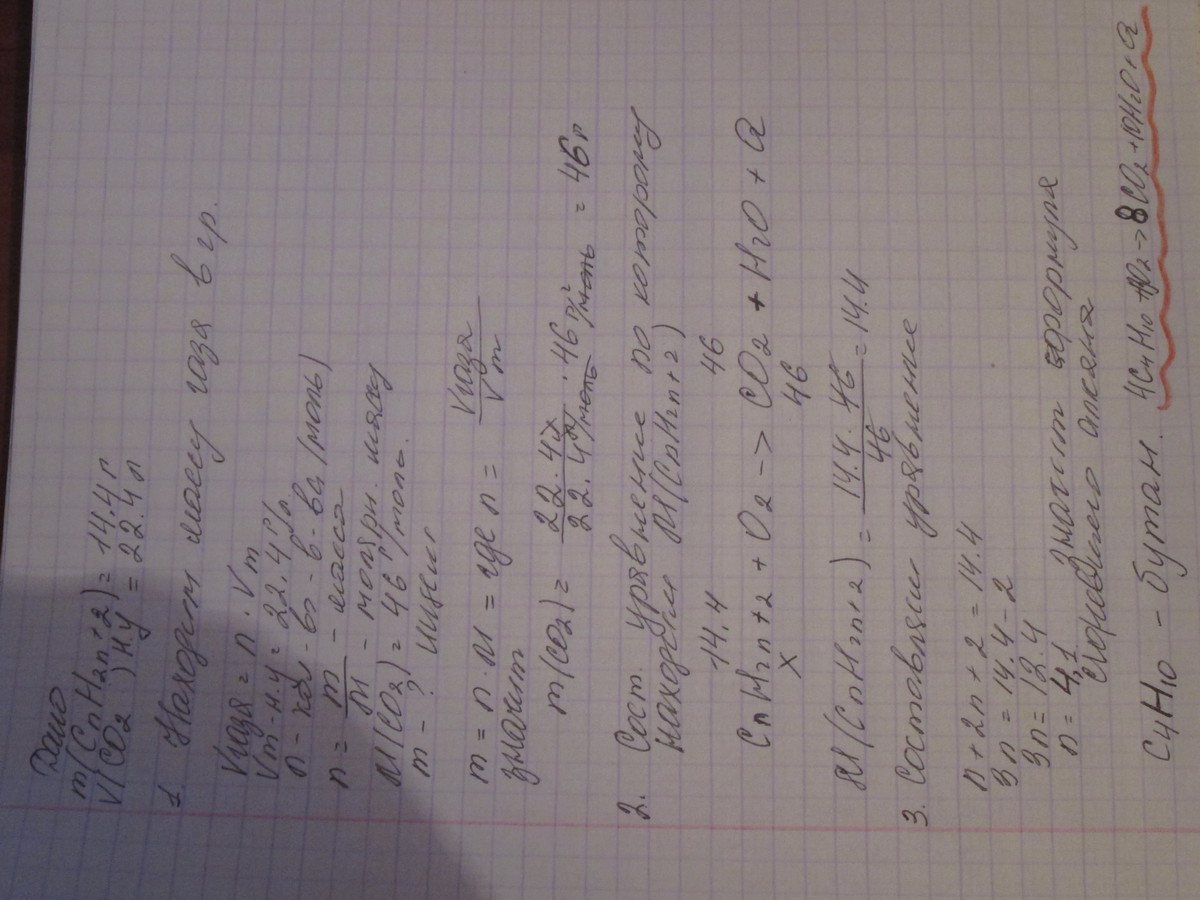 Дано
m(CnH2n+2) = 14.4 г
V(CO2) н.у = 22.4 л
1. Находим массу газа в гр.
Vгаза = n · Vm
Vm - н.у = 22.4 г/л.
n - кол - во - в - ва (моль)
n = m/M - масса
M - молярн. масса
M(CO2) = 46 г/моль.
m - ?
m = n · M = где n = Vгаза/Vm
значит
m(CO2) = 22.4л / 22.4 л/моль · 46 г/моль = 46 г
2. Сост. уравнение по которому
находим M(CnH2n+2)
14.4 46
CnH2n+2 + O2 -> CO2 + H2O + Q
x 46
M(CnH2n+2) = 14.4 · 46 / 46 = 14.4
3. Составляем уравнение
n + 2n + 2 = 14.4
3n = 14.4 - 2
3n = 12.4
n = 4,1 значит формула
алкана
C4H10 - бутан. 4C4H10 + O2 -> 8CO2 + 10H2O + Q